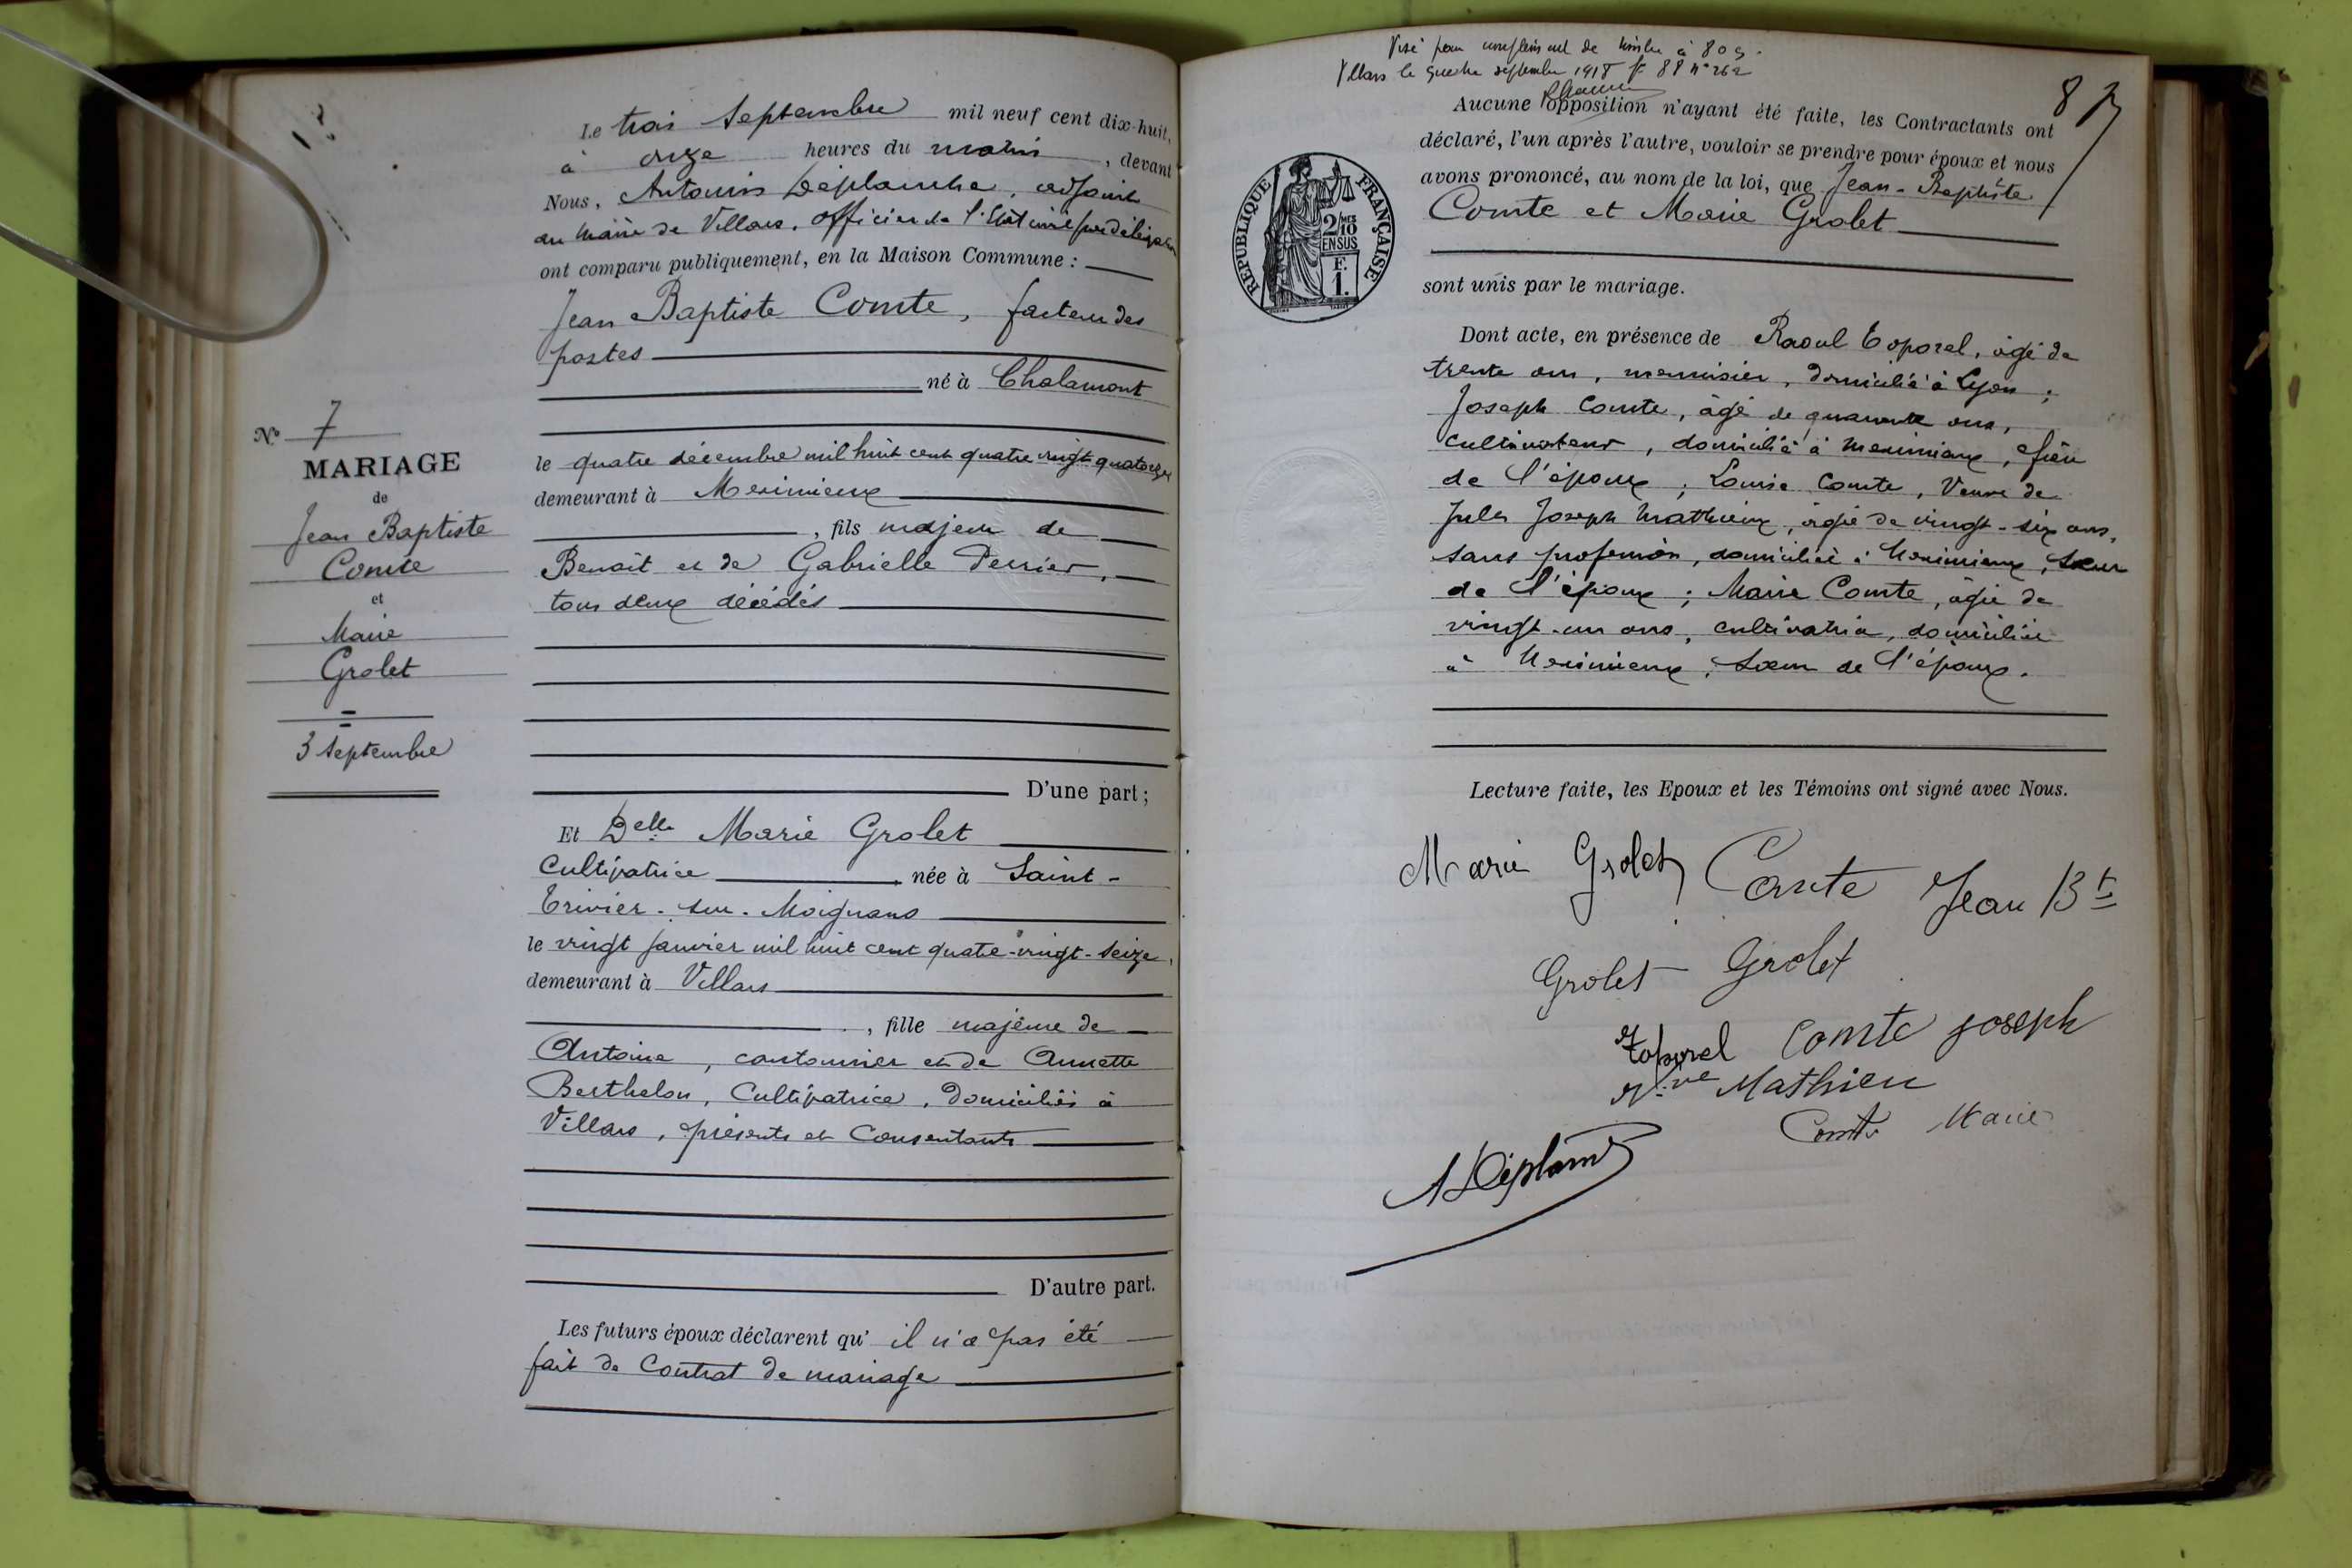 Le trois Septembre mil neuf cent dix-huit,
à onze heures du matin, devant
Nous, Antonin Déplanche, adjoint
au Maire de Villars, officier de l'Etat civil par délégation
ont comparu publiquement, en la Maison Commune :
Jean Baptiste Comte, facteur des
postes
né à Chalamont
le quatre décembre mil huit cent quatre vingt quatorze
demeurant à Meximieux
, fils majeur de
Benoît et de Gabrielle Perrier,
tous deux décédés
D'une part ;
N° 7
MARIAGE
de
Jean Baptiste
Comte
et
Marie
Grolet
3 Septembre
Et Delle Marie Grolet
Cultivatrice née à Saint-
Trivier-sur-Moignans
le vingt Janvier mil huit cent quatre-vingt-seize,
demeurant à Villars
, fille majeure de
Antoine, cantonnier et de Annette
Berthelon, Cultivatrice, domiciliés à
Villars, présents et Consentants
D'autre part.
Les futurs époux déclarent qu' il n'a pas été
fait de Contrat de mariage
Visé pour complément de timbre à 80 c.
Villars le quatre septembre 1918 f° 88 n° 262
87
Aucune opposition n'ayant été faite, les Contractants ont
déclaré, l'un après l'autre, vouloir se prendre pour époux et nous
avons prononcé, au nom de la loi, que Jean-Baptiste
Comte et Marie Grolet
sont unis par le mariage.
REPUBLIQUE FRANÇAISE
2/10 MES
EN SUS
F.
1.
Dont acte, en présence de Raoul Toporel, âgé de
trente ans, menuisier, domicilié à Lyon ;
Joseph Comte, âgé de quarante ans,
cultivateur, domicilié à Meximieux, frère
de l'époux ; Louise Comte, Veuve de
Jules Joseph Mathieu, âgée de vingt-six ans,
sans profession, domiciliée à Meximieux, soeur
de l'époux ; Marie Comte, âgée de
vingt-un ans, cultivatrice, domiciliée
à Meximieux, soeur de l'époux.
Lecture faite, les Epoux et les Témoins ont signé avec Nous.
Marie Grolet Comte Jean Bte
Grolet Grolet
Toporel Comte Joseph
Vve Mathieu
Comte Marie
A Déplanche